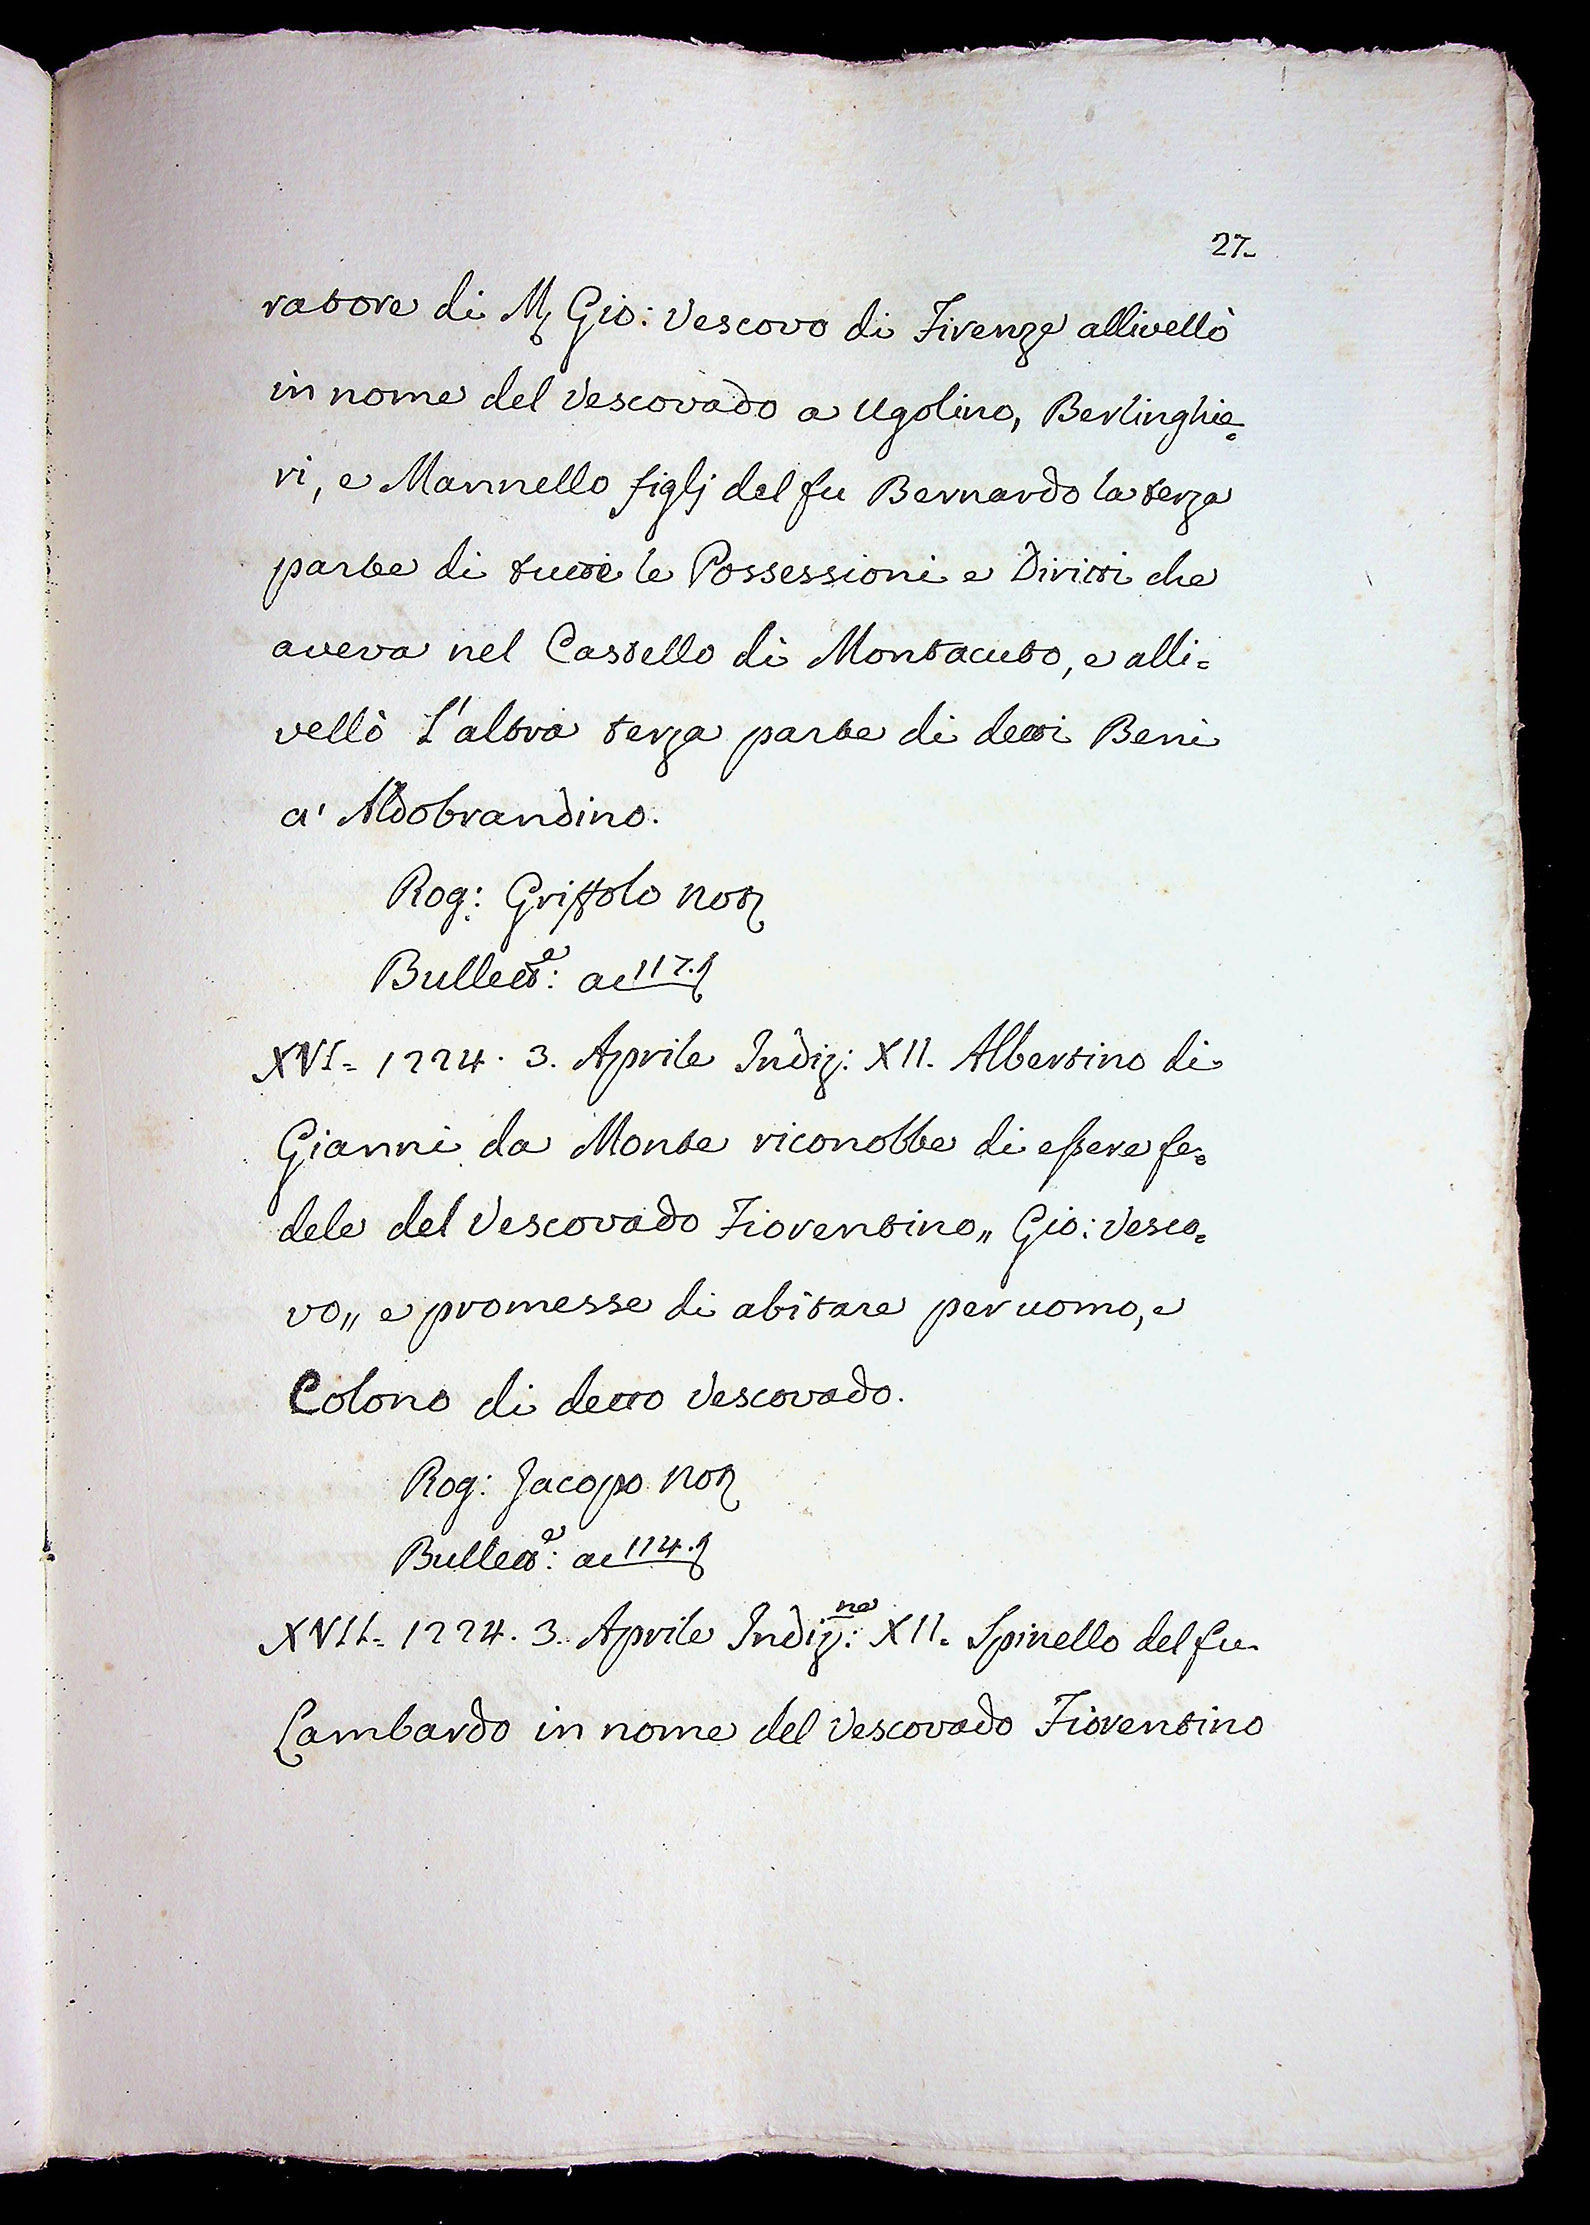 27.
ratore di M. Gio: Vescovo di Firenze allivellò
in nome del Vescovado a Ugolino, Berlinghie=
ri, e Mannello figlj del fu Bernardo la terza
parte di tutte le Possessioni e Diritti che
aveva nel Castello di Montacuto, e alli=
vellò L'altra terza parte di detti Beni
a' Aldobrandino.
Rog: Griffolo Not.
Bullett.e: ac 117.
XVI= 1224. 3. Aprile Indiz: XII. Albertino di
Gianni da Monte riconobbe di essere fe=
dele del Vescovado Fiorentino,, Gio: Vesco=
vo,, e promesse di abitare per uomo, e
Colono di detto Vescovado.
Rog: Jacopo Not.
Bullett.e: ac 114.
XVII= 1224. 3. Aprile Indiz:ne XII. Spinello del fu
Lambardo in nome del Vescovado Fiorentino